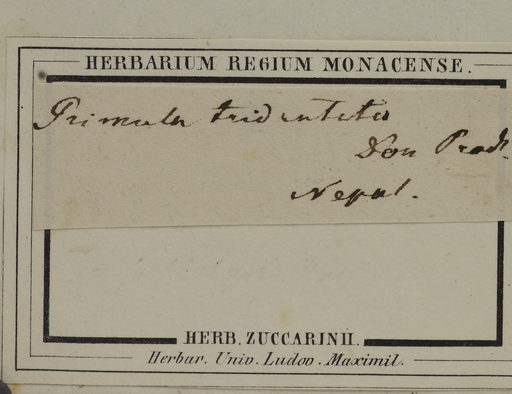 HERBARIUM REGIUM MONACENSE.
Primula tridentata
Don Prodr.
Nepal.
HERB. ZUCCARINII.
Herbar. Univ. Ludov. Maximil.